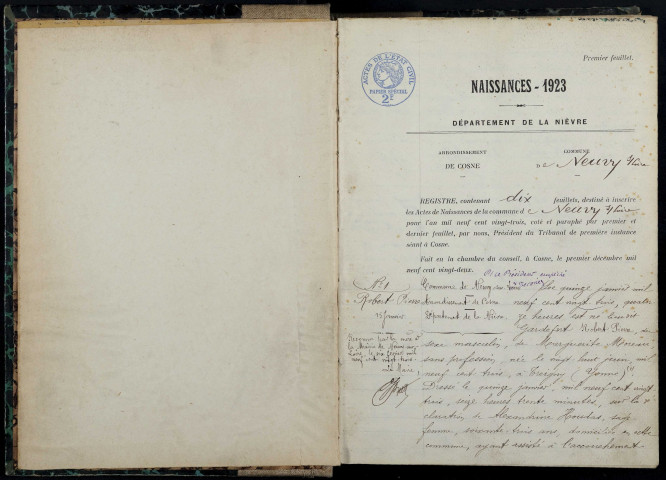 Premier feuillet.
ACTES DE L'ETAT CIVIL
PAPIER SPECIAL
2F
NAISSANCES - 1923
DÉPARTEMENT DE LA NIÈVRE
ARRONDISSEMENT
COMMUNE
DE COSNE
de Neuvy s/Loire
REGISTRE, contenant dix feuillets, destiné à inscrire
les Actes de Naissances de la commune de Neuvy s/Loire
pour l'an mil neuf cent vingt-trois, coté et paraphé par premier et
dernier feuillet, par nous, Président du Tribunal de première instance
séant à Cosne.
Fait en la chambre du conseil, à Cosne, le premier décembre mil
neuf cent vingt-deux.
Le Président
No 1
Robert Pierre
15 Janvier
Commune de Neuvy-sur-Loire
Arrondissement de Cosne
Département de la Nièvre
Le quinze janvier mil
neuf cent vingt trois, quatre
heures est né
Robert Pierre, du
sexe masculin, de Marguerite
sans profession, née le vingt huit juin mil
neuf cent trois, à Treigny (Yonne)
Dressé le quinze janvier, mil neuf cent vingt
trois, seize heures trente minutes, sur la
déclaration de Alexandrine Houdas, sage
femme, soixante-trois ans, domiciliée en cette
commune, ayant assisté à l'accouchement